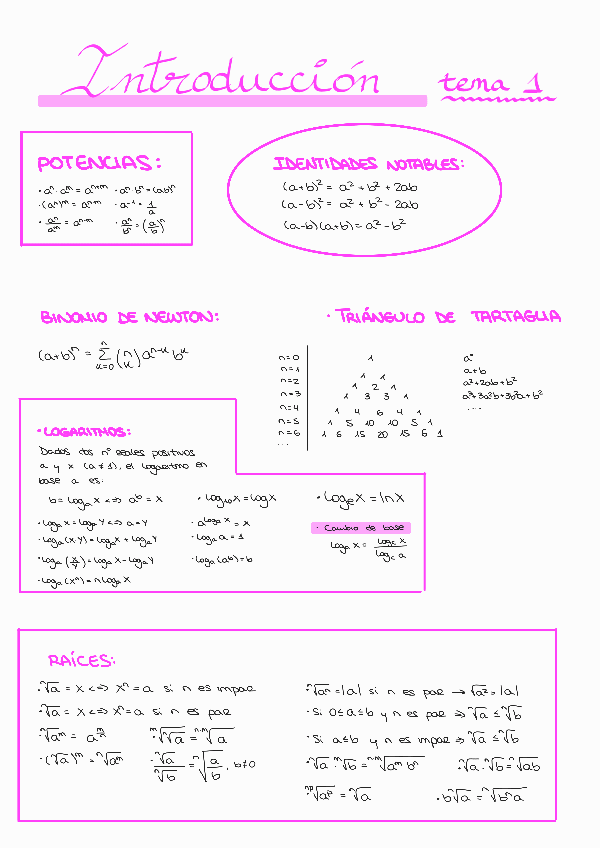 Introducción tema 1
POTENCIAS:
· aⁿ · aᵐ = aⁿ⁺ᵐ · aⁿ · bⁿ = (ab)ⁿ
· (aⁿ)ᵐ = aⁿ·ᵐ · a⁻¹ = 1/a
· aⁿ/aᵐ = aⁿ⁻ᵐ · aⁿ/bⁿ = (a/b)ⁿ
IDENTIDADES NOTABLES:
(a+b)² = a² + b² + 2ab
(a-b)² = a² + b² - 2ab
(a-b)(a+b) = a² - b²
BINOMIO DE NEWTON:
(a+b)ⁿ = Σₖ₌₀ⁿ (n k) aⁿ⁻ᵏ bᵏ
· TRIÁNGULO DE TARTAGLIA
n=0 1 a°
n=1 1 1 a+b
n=2 1 2 1 a²+2ab+b²
n=3 1 3 3 1 a³+3a²b+3b²a+b³
n=4 1 4 6 4 1 ...
n=5 1 5 10 10 5 1
n=6 1 6 15 20 15 6 1
...
· LOGARITMOS:
Dados dos nº reales positivos
a y x (a ≠ 1), el logaritmo en
base a es:
b = logₐ x <=> aᵇ = x · log₁₀ x = log x · logₑ x = ln x
· logₐ x = logₐ y <=> a = y · a^(logₐ x) = x · Cambio de base
· logₐ (x y) = logₐ x + logₐ y · logₐ a = 1 logₐ x = log_c x / log_c a
· logₐ (x/y) = logₐ x - logₐ y · logₐ (aᵇ) = b
· logₐ (xⁿ) = n logₐ x
RAÍCES:
· ⁿ√a = x <=> xⁿ = a si n es impar
· ⁿ√a = x <=> xⁿ = a si n es par
· ⁿ√aᵐ = a^(m/n) ᵐ√ⁿ√a = ⁿ·ᵐ√a
· (ⁿ√a)ᵐ = ⁿ√aᵐ · ⁿ√a / ⁿ√b = ⁿ√(a/b), b≠0
· ⁿ√aⁿ = |a| si n es par → √a² = |a|
· Si 0 ≤ a ≤ b y n es par => ⁿ√a ≤ ⁿ√b
· Si a ≤ b y n es impar => ⁿ√a ≤ ⁿ√b
· ⁿ√a · ᵐ√b = ⁿ·ᵐ√(aᵐ bⁿ) · ⁿ√a · ⁿ√b = ⁿ√ab
· ⁿᵖ√aᵖ = ⁿ√a · b ⁿ√a = ⁿ√(bⁿ a)